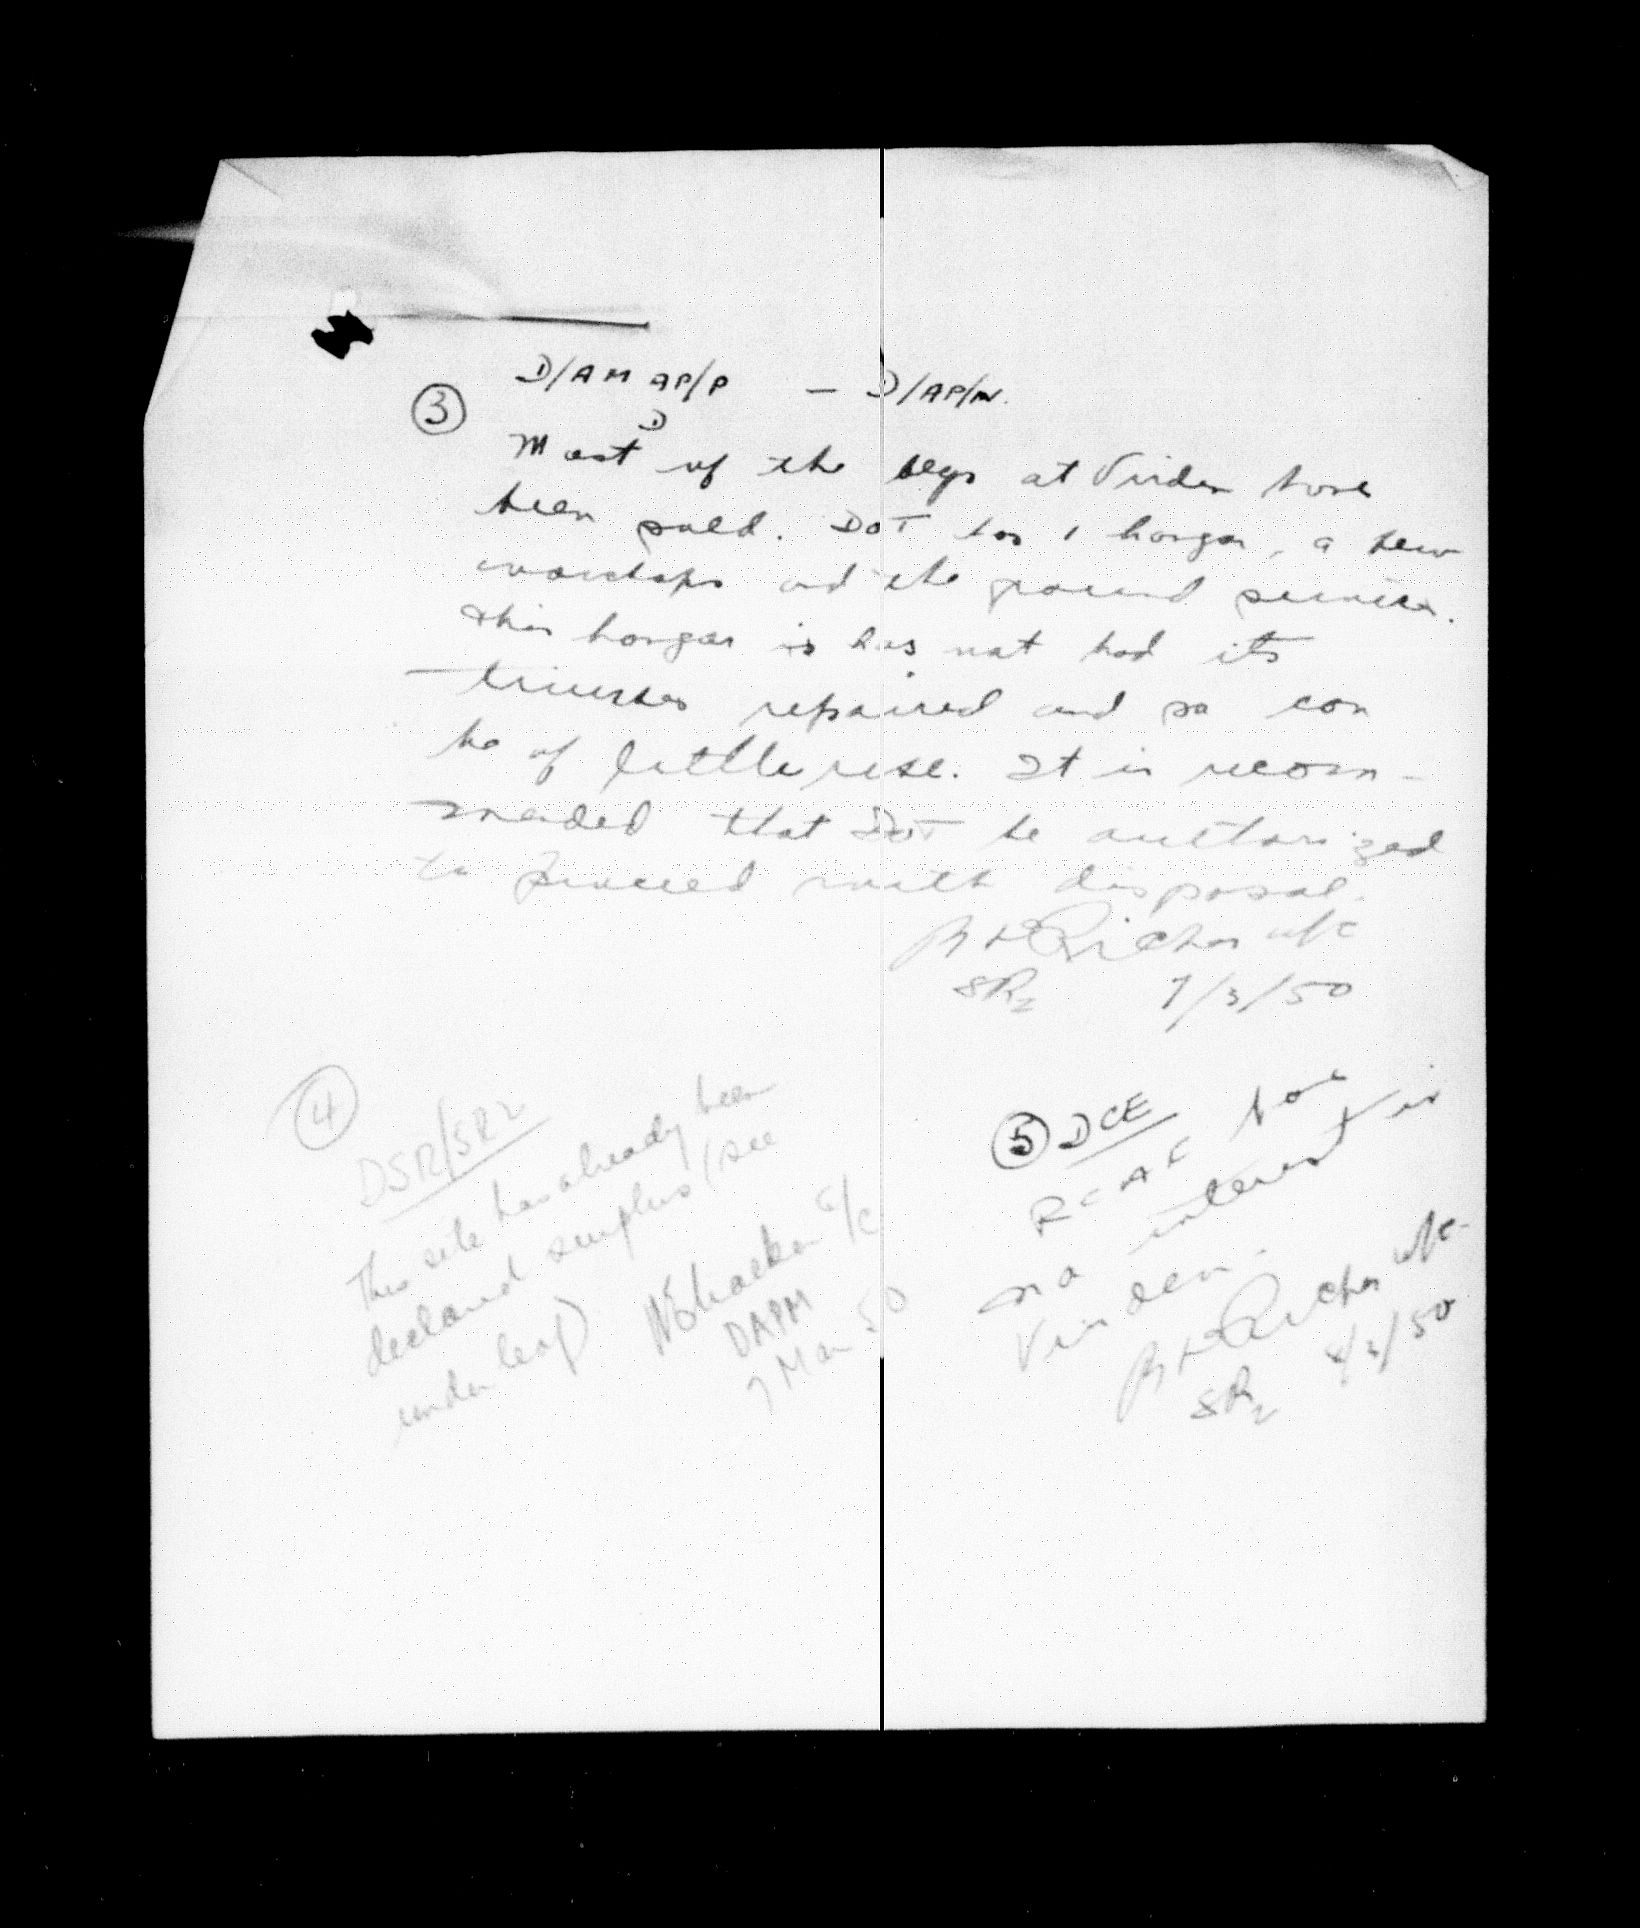 ③ D/AMAP/P — D/AP/M.
D
Most of the bldgs at Virden have
been sold. DoT has 1 hangar, a few
workshops and the ground services.
This hangar is has not had its
trusses repaired and so can
be of little use. It is recom-
mended that DoT be authorized
to proceed with disposal.
W/C
SR2 7/3/50
④ DSR/SR2
This site has already been
declared surplus (see
under leaf)
G/C
DAPM
7 Mar 50
⑤ DCE
RCAF have
no interest in
Virden.
W/C
SR2 8/3/50